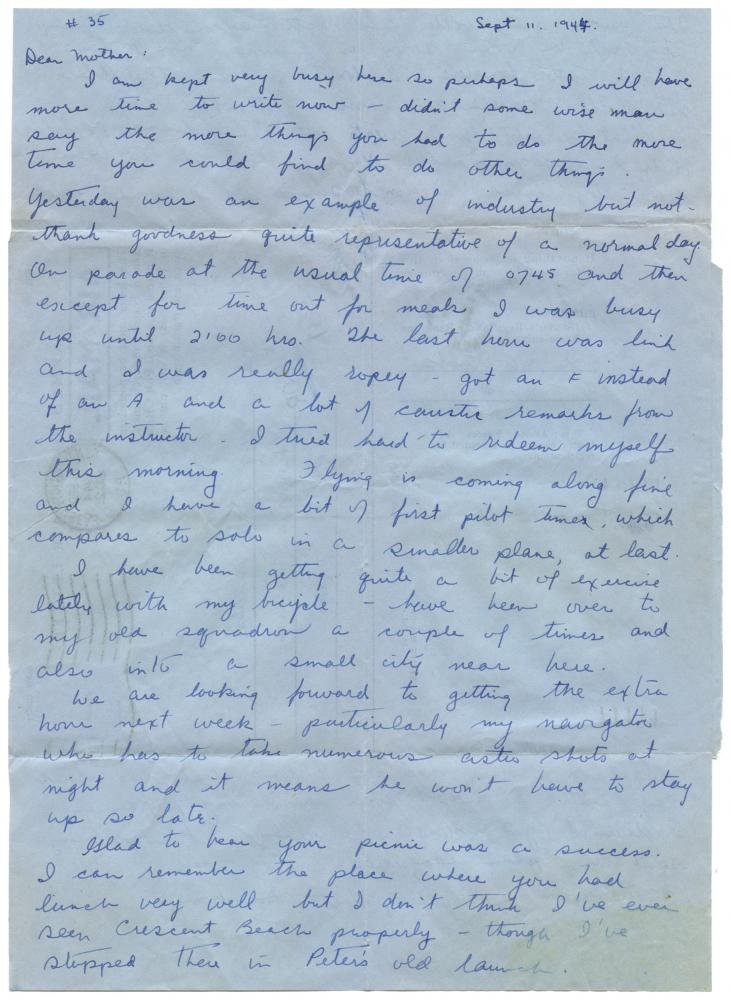 # 35
Sept 11. 1944.
Dear Mother:
I am kept very busy here so perhaps I will have
more time to write now - didn't some wise man
say the more things you had to do the more
time you could find to do other things.
Yesterday was an example of industry but not -
thank goodness quite representative of a normal day.
On parade at the usual time of 0745 and then
except for time out for meals I was busy
up until 2100 hrs. The last hour was link
and I was really ropey - got an F instead
of an A and a lot of caustic remarks from
the instructor. I tried hard to redeem myself
this morning. Flying is coming along fine
and I have a bit of first pilot times, which
compares to solo in a smaller plane, at last.
I have been getting quite a bit of exercise
lately with my bicycle - have been over to
my old squadron a couple of times and
also into a small city near here.
We are looking forward to getting the extra
hour next week - particularly my navigator
who has to take numerous astro shots at
night and it means he won't have to stay
up so late.
Glad to hear your picnic was a success.
I can remember the place where you had
lunch very well but I don't think I've ever
seen Crescent Beach properly - though I've
stopped there in Peter's old launch.